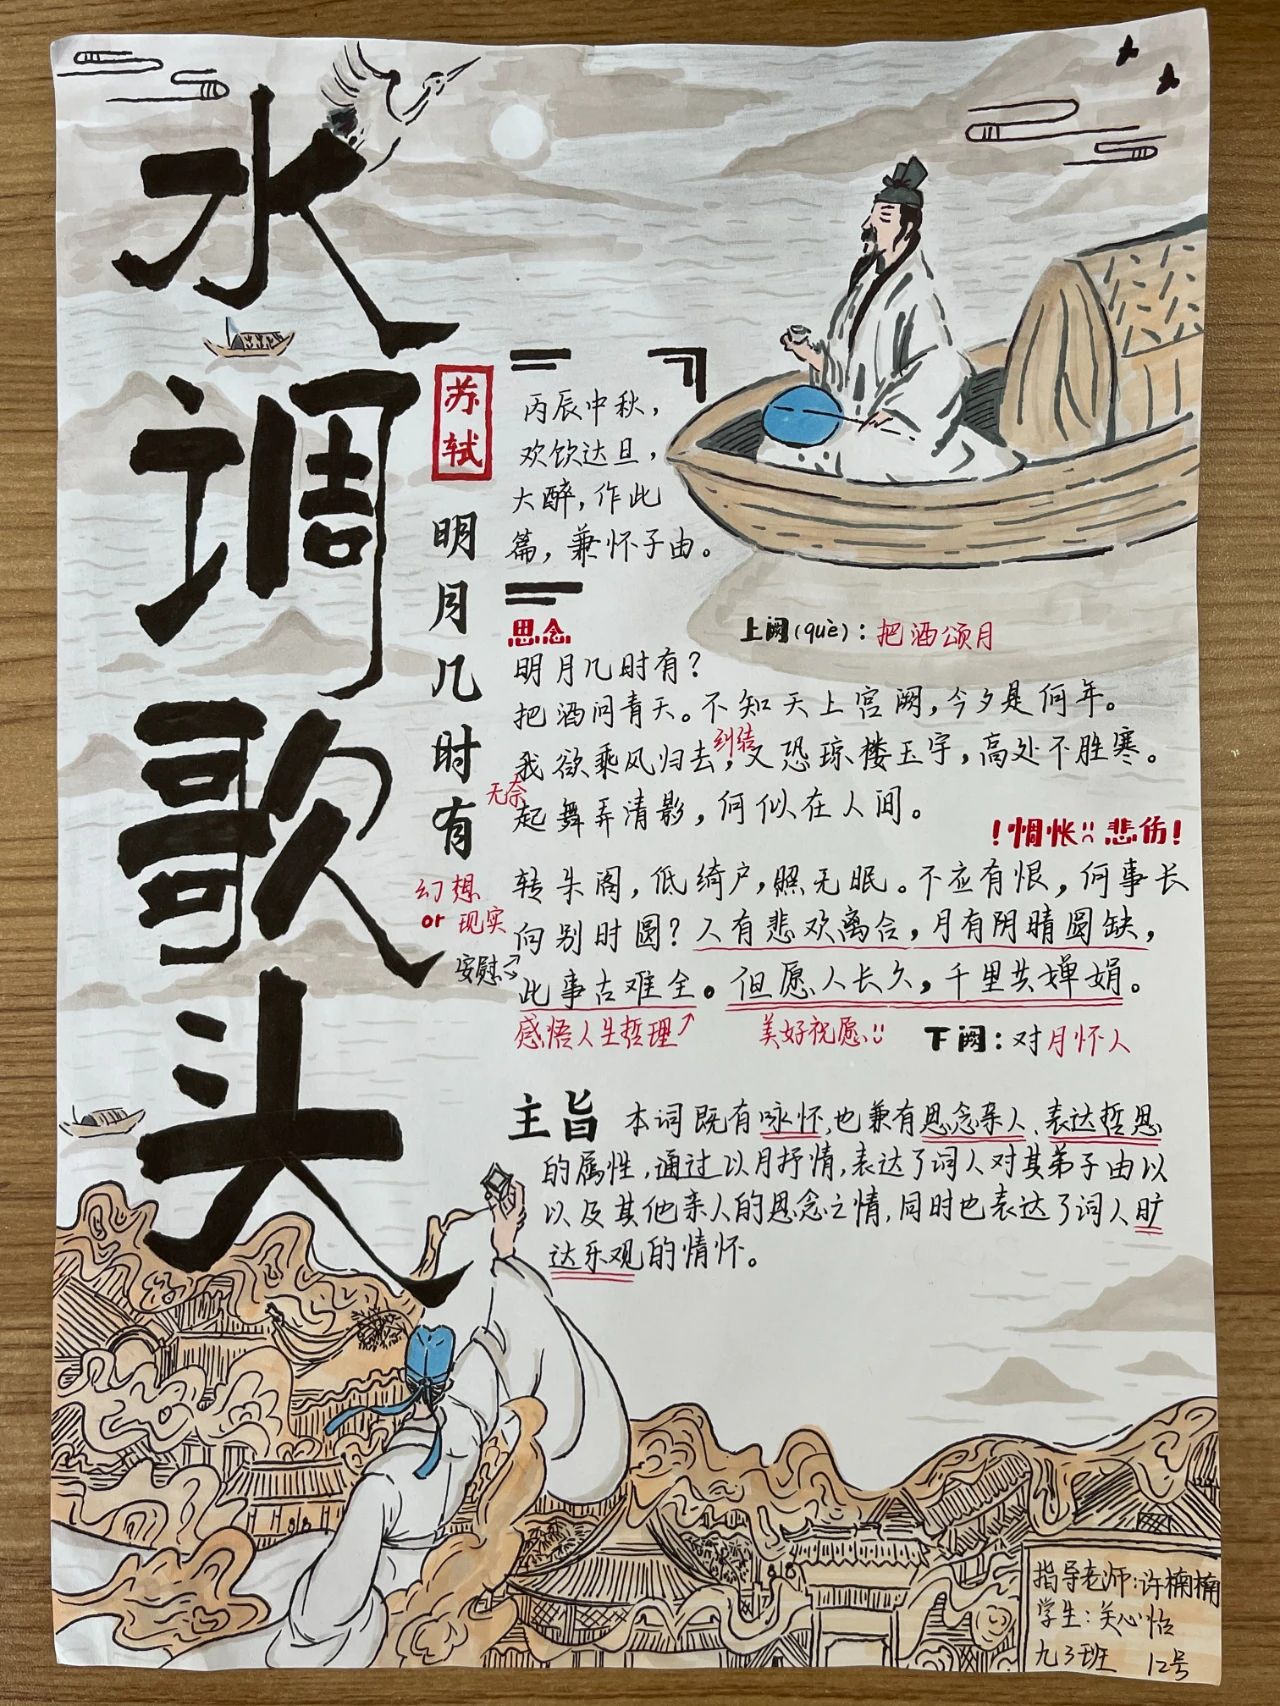 水调歌头
苏轼
明月几时有
丙辰中秋，
欢饮达旦，
大醉，作此
篇，兼怀子由。
思念
上阙(què)：把酒颂月
明月几时有？
把酒问青天。不知天上宫阙，今夕是何年。
纠结
我欲乘风归去，又恐琼楼玉宇，高处不胜寒。
无奈
起舞弄清影，何似在人间。
！惆怅 悲伤！
幻想
or 现实
转朱阁，低绮户，照无眠。不应有恨，何事长
向别时圆？人有悲欢离合，月有阴晴圆缺，
安慰
此事古难全。但愿人长久，千里共婵娟。
感悟人生哲理 美好祝愿 下阙：对月怀人
主旨 本词既有咏怀，也兼有思念亲人、表达哲思
的属性，通过以月抒情，表达了词人对其弟子由以
以及其他亲人的思念之情，同时也表达了词人旷
达乐观的情怀。
指导老师：许楠楠
学生：关心怡
九3班 12号